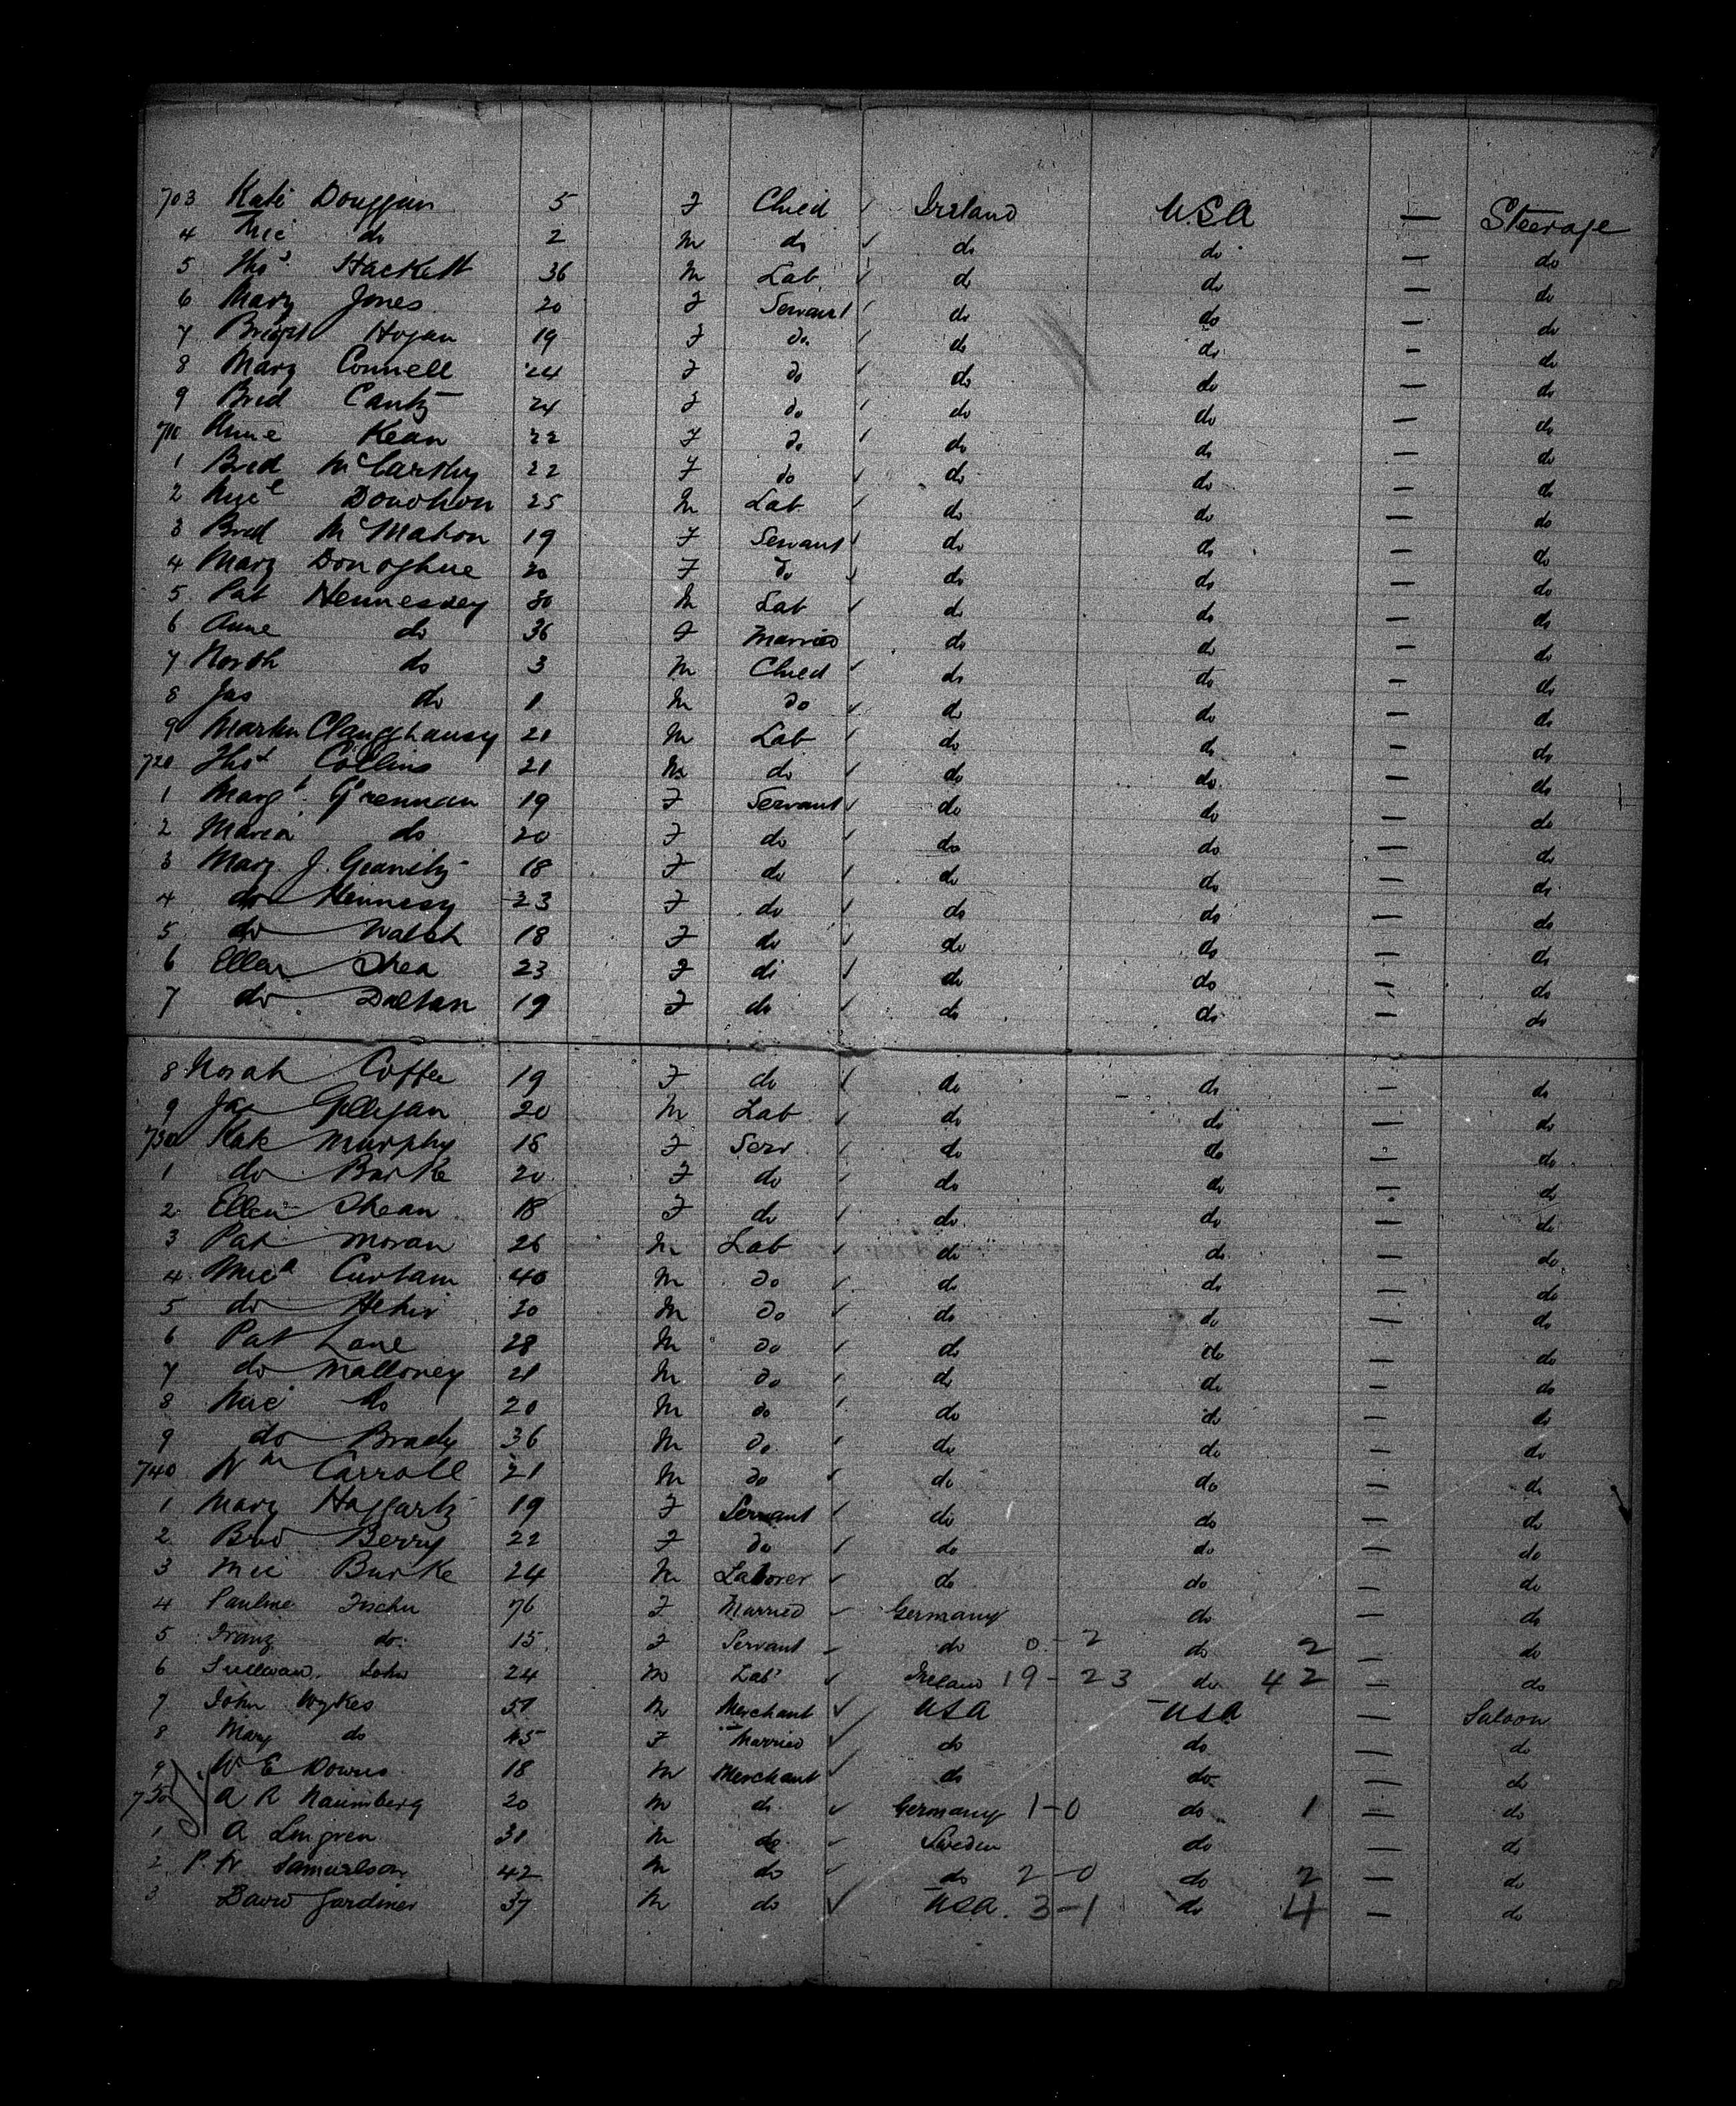 703 Kate Douggan 5 F Child ✓ Ireland USA — Steerage
4 Mic do 2 M do ✓ do do — do
5 Thos Hackett 36 M Lab ✓ do do — do
6 Mary Jones 20 F Servant ✓ do do — do
7 Bridget Hogan 19 F do ✓ do do — do
8 Mary Connell 24 F do ✓ do do — do
9 Brid Canty 24 F do ✓ do do — do
710 Anne Kean 22 F do ✓ do do — do
1 Brid McCarthy 22 F do ✓ do do — do
2 Micl Donohon 25 M Lab ✓ do do — do
3 Brid McMahon 19 F Servant ✓ do do — do
4 Mary Donoghue 20 F do ✓ do do — do
5 Pat Hennessey 30 M Lab ✓ do do — do
6 Anne do 36 F Married do do — do
7 North do 3 M Child ✓ do do — do
8 Jas do 1 M do ✓ do do — do
9 Martin 21 M Lab ✓ do do — do
720 Thos Collins 21 M do ✓ do do — do
1 Margt Grennan 19 F Servant ✓ do do — do
2 Maria do 20 F do ✓ do do — do
3 Mary J. 18 F do ✓ do do — do
4 do Hennesy 23 F do ✓ do do — do
5 do Walsh 18 F do ✓ do do — do
6 Ellen Shea 23 F do ✓ do do — do
7 do Daltan 19 F do ✓ do do — do
8 Norah Coffee 19 F do ✓ do do — do
9 Jas Gilligan 20 M Lab ✓ do do — do
730 Kate Murphy 18 F Serv ✓ do do — do
1 do Burke 20 F do ✓ do do — do
2 Ellen Shean 18 F do ✓ do do — do
3 Pat Moran 26 M Lab ✓ do do — do
4 Micl Curtain 40 M do ✓ do do — do
5 do Hehir 30 M do ✓ do do — do
6 Pat Lane 28 M do ✓ do do — do
7 do Malloney 21 M do ✓ do do — do
8 Mic do 20 M do ✓ do do — do
9 do Brady 36 M do ✓ do do — do
740 Wm Carroll 21 M do ✓ do do — do
1 Mary Haggarty 19 F Servant ✓ do do — do
2 Brid Berry 22 F do ✓ do do — do
3 Mic Burke 24 M Laborer ✓ do do — do
4 Pauline Fischer 76 F Married ✓ Germany do — do
5 Franz do 15 F Servant ✓ do 0-2 do 2 — do
6 Sullivan John 24 M Labr ✓ Ireland 19-23 do 42 — do
7 John Wykes 51 M Merchant ✓ USA USA — Saloon
8 Mary do 45 F Married ✓ do do — do
9 W E Downs 18 M Merchant ✓ do do — do
750 A R Naumberg 20 M do ✓ Germany 1-0 do 1 — do
1 A Lingren 31 M do ✓ Sweden do — do
2 P. W Samuelson 42 M do ✓ do 2-0 do 2 — do
3 David Gardiner 37 M do ✓ USA. 3-1 do 4 — do